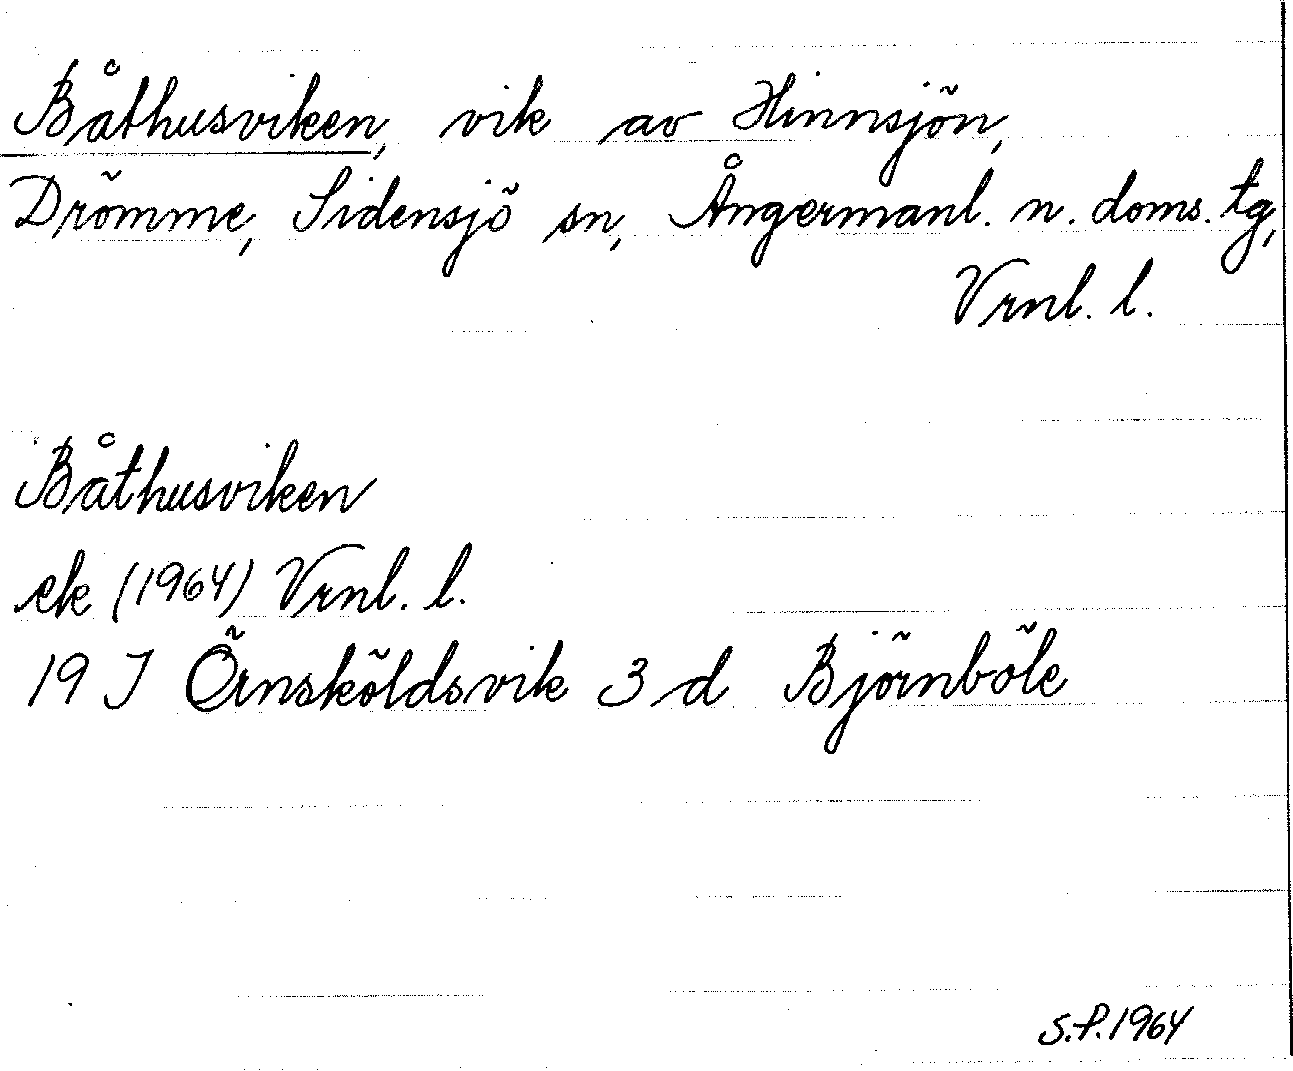 Båthusviken, vik av Hinnsjön,
Drömme, Sidensjö sn, Ångermanl. n. doms. tg,
Vrnl. l.
Båthusviken
ek (1964) Vrnl. l.
19 J Örnsköldsvik 3 d Björnböle
S.P.1964